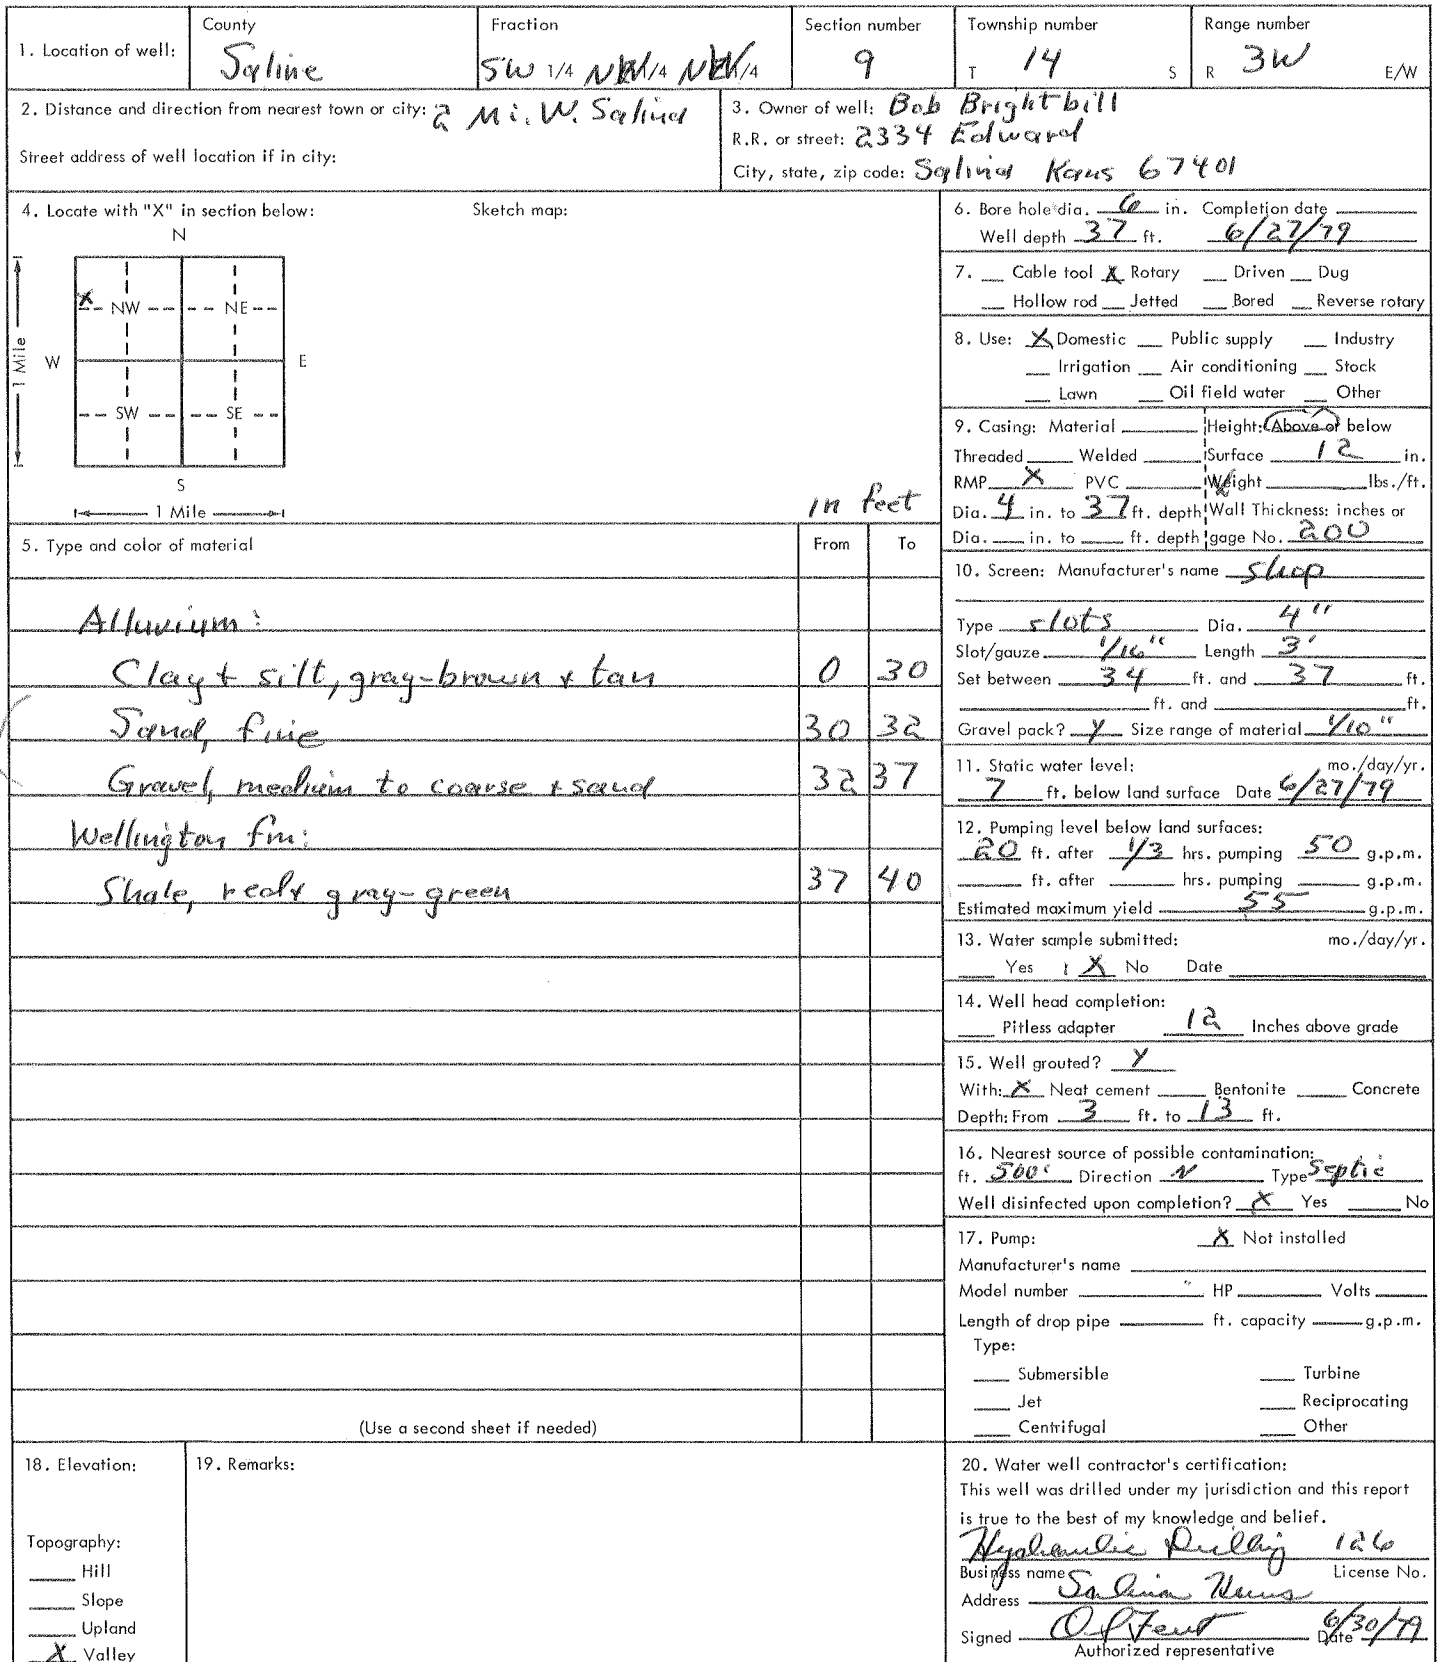 1. Location of well: County Saline Fraction SW 1/4 NW 1/4 NW 1/4 Section number 9 Township number T 14 S Range number R 3W E/W
2. Distance and direction from nearest town or city: 2 Mi. W. Salina
Street address of well location if in city:
3. Owner of well: Bob Brightbill
R.R. or street: 2334 Edward
City, state, zip code: Salina Kans 67401
4. Locate with "X" in section below: Sketch map:
N
X
NW NE
W E
1 Mile
SW SE
S
1 Mile
in feet
5. Type and color of material From To
Alluvium:
Clay + silt, gray-brown + tan 0 30
Sand, fine 30 32
Gravel, medium to coarse + sand 32 37
Wellington fm:
Shale, red + gray-green 37 40
(Use a second sheet if needed)
6. Bore hole dia. 6 in. Completion date
Well depth 37 ft. 6/27/79
7. Cable tool X Rotary Driven Dug
Hollow rod Jetted Bored Reverse rotary
8. Use: X Domestic Public supply Industry
Irrigation Air conditioning Stock
Lawn Oil field water Other
9. Casing: Material Height: Above or below
Threaded Welded Surface 12 in.
RMP X PVC Weight lbs./ft.
Dia. 4 in. to 37 ft. depth Wall Thickness: inches or
Dia. in. to ft. depth gage No. 200
10. Screen: Manufacturer's name shop
Type slots Dia. 4"
Slot/gauze 1/16" Length 3'
Set between 34 ft. and 37 ft.
ft. and ft.
Gravel pack? Y Size range of material 1/10"
11. Static water level: mo./day/yr.
7 ft. below land surface Date 6/27/79
12. Pumping level below land surfaces:
20 ft. after 1/3 hrs. pumping 50 g.p.m.
ft. after hrs. pumping g.p.m.
Estimated maximum yield 55 g.p.m.
13. Water sample submitted: mo./day/yr.
Yes X No Date
14. Well head completion:
Pitless adapter 12 Inches above grade
15. Well grouted? Y
With: X Neat cement Bentonite Concrete
Depth: From 3 ft. to 13 ft.
16. Nearest source of possible contamination:
ft. 500' Direction N Type Septic
Well disinfected upon completion? X Yes No
17. Pump: X Not installed
Manufacturer's name
Model number HP Volts
Length of drop pipe ft. capacity g.p.m.
Type:
Submersible Turbine
Jet Reciprocating
Centrifugal Other
18. Elevation:
Topography:
Hill
Slope
Upland
X Valley
19. Remarks:
20. Water well contractor's certification:
This well was drilled under my jurisdiction and this report
is true to the best of my knowledge and belief.
Hydraulic Drilling 126
Business name License No.
Address Salina Kans
Signed Date 6/30/79
Authorized representative